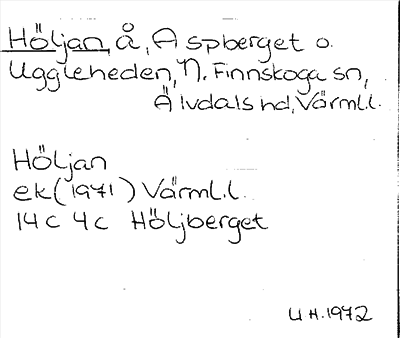 Höljan, å, Aspberget o.
Uggleheden, N. Finnskoga sn,
Älvdals hd, Värml.l.
Höljan
ek (1971) Värml.l.
14c 4c Höljberget
U H. 1972